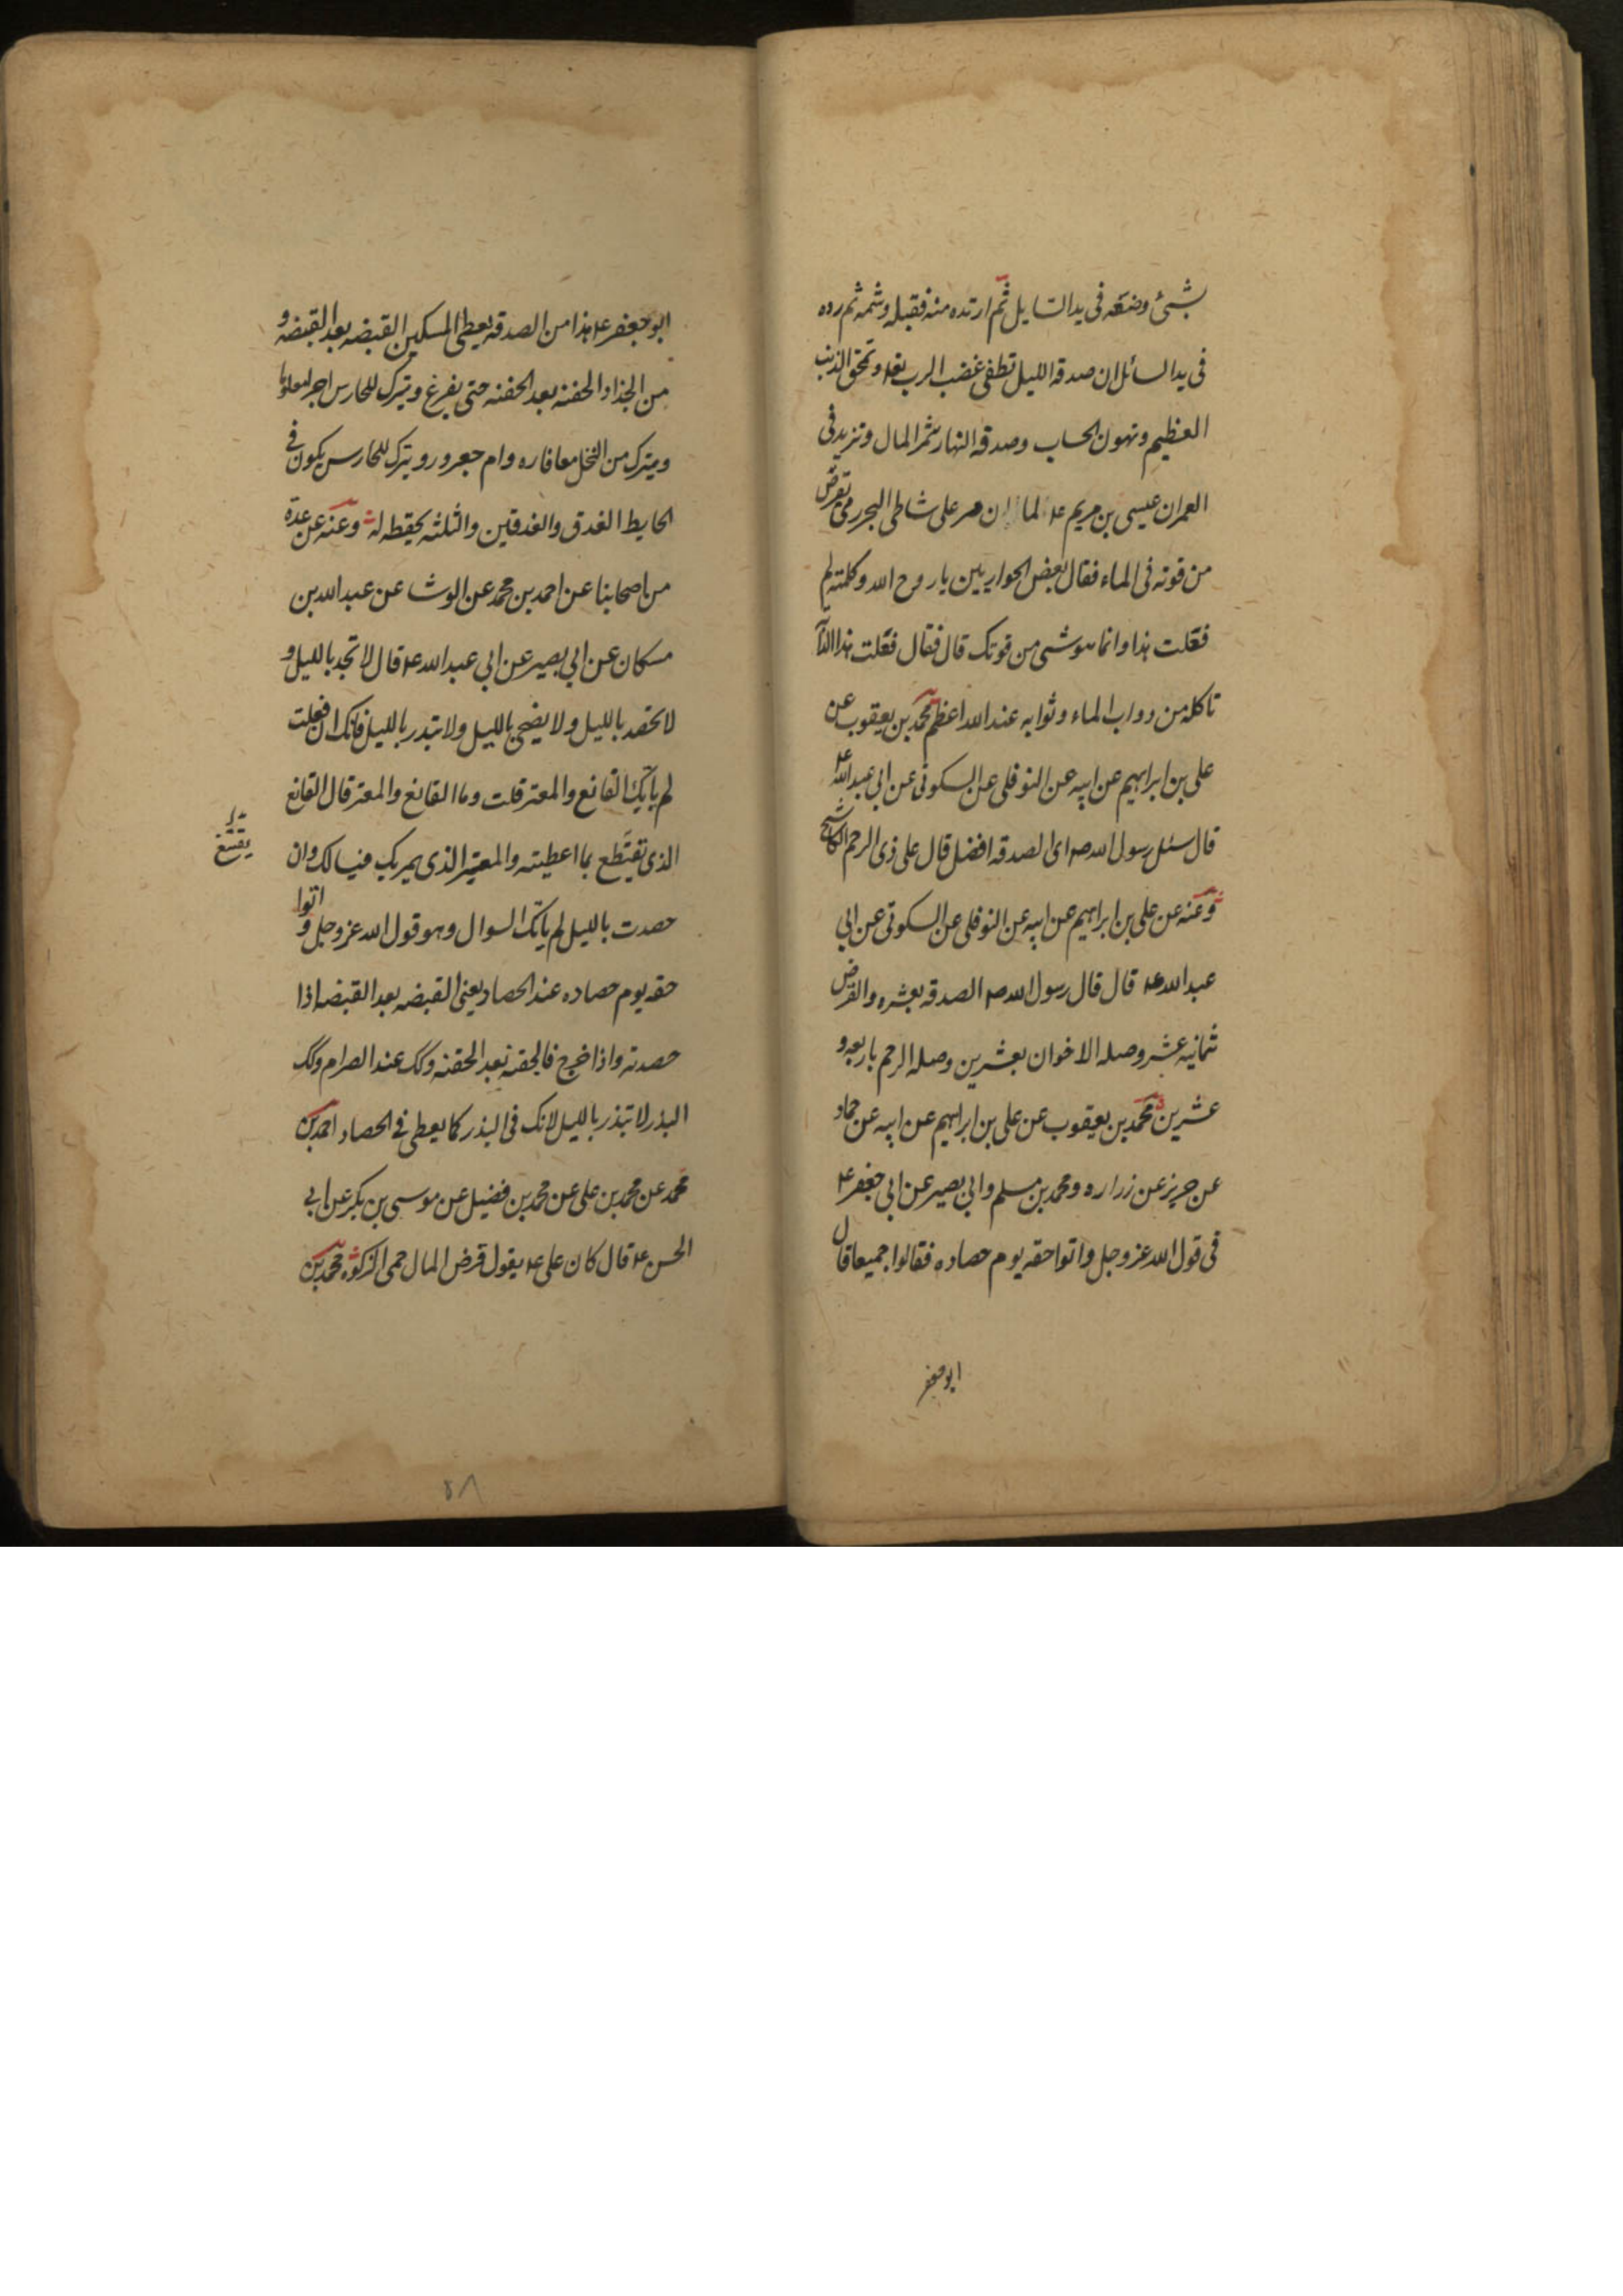 بشیء وضعه فی ید السایل ثم ارتده منه فقبله وشمه ثم رده
فی ید السائل ان صدقه اللیل تطفی غضب الرب تعا وتمحق الذنب
العظیم وتهون الحساب وصدقه النهار تثمر المال وتزید فی
العمر ان عیسی بن مریم ع لما ان مر علی شاطی البحر رمی بقرص
من قوته فی الماء فقال بعض الحواریین یا روح الله وکلمته لم
فعلت هذا وانما هو شیء من قوتک قال فقال فعلت هذا لدآ
تاکله من دواب الماء وثوابه عند الله اعظم محمد بن یعقوب عن
علی بن ابراهیم عن ابیه عن النوفلی عن السکونی عن ابی عبدالله ع
قال سئل رسول الله ص ای الصدقه افضل قال علی ذی الرحم الکاشح
وعنه عن علی بن ابراهیم عن ابیه عن النوفلی عن السکونی عن ابی
عبدالله ع قال قال رسول الله ص الصدقه بعشره والقرض
ثمانیه عشر وصله الاخوان بعشرین وصله الرحم باربعه و
عشرین محمد بن یعقوب عن علی بن ابراهیم عن ابیه عن حماد
عن حریز عن زراره ومحمد بن مسلم وابی بصیر عن ابی جعفر ع
فی قول الله عز وجل واتوا حقه یوم حصاده فقالوا جمیعا قال
ابو جعفر
ابو جعفر ع هذا من الصدقه یعطی المسکین القبضه بعد القبضه و
من الجذاذ الحفنه بعد الحفنه حتی یفرغ ویترک للحارس اجرا معلوما
ویترک من النخل معافاره وام جعرور ویترک للحارس یکون فی
الحایط الغدق والغدقین والثلثه لحفظه له وعنه عن عدة
من اصحابنا عن احمد بن محمد عن الوشا عن عبد الله بن
مسکان عن ابی بصیر عن ابی عبد الله ع قال لا تجد باللیل و
لا تحصد باللیل ولا یضحی باللیل ولا تبذر باللیل فانک ان فعلت
لم یاتک القانع والمعتر قلت وما القانع والمعتر قال القانع
الذی یقتطع بما اعطیته والمعتر الذی یمر بک فیسالک وان
یقنع
حصدت باللیل لم یاتک السوال وهو قول الله عز وجل واتوا
حقه یوم حصاده عند الحصاد یعنی القبضه بعد القبضه اذا
حصدته واذا خرج فالحفنه بعد الحفنه وکک عند الصرام وکک
البذر لا تبذر باللیل لانک فی البذر کما یعطی فی الحصاد احمد بن
محمد عن محمد بن علی عن محمد بن فضیل عن موسی بن بکر عن ابی
الحسن ع قال کان علی ع یقول قرض المال حمی الزکوه محمد بن
۵۸